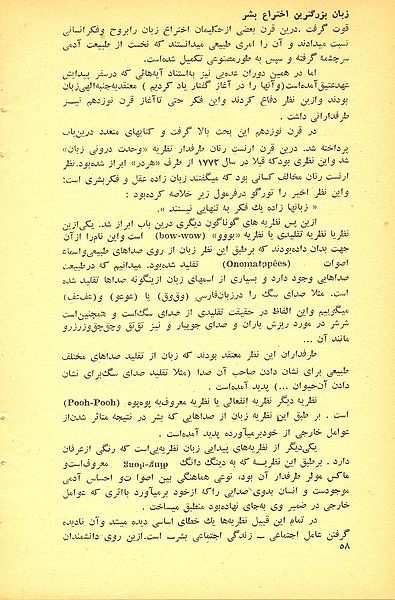 زبان بزرگترین اختراع بشر
قوت گرفت. درین قرن بعضی ازحکیمان اختراع زبان رابروح وفکرانسانی
نسبت میدادند و آن را امری طبیعی میدانستند که نخست از طبیعت آدمی
سرچشمه گرفته و سپس به طورمصنوعی تکمیل شده‌است.
اما در همین دوران عده‌یی نیز به‌استناد آیه‌هائی که درسفر پیدایش
عهدعتیق‌آمده‌است (و‌آنها را در آغاز گفتار یاد کردیم) معتقدبه‌جنبۀ‌الهی‌زبان
بودند وازین نظر دفاع کردند واین فکر حتی تاآغاز قرن نوزدهم نیز
طرفدارانی داشت.
در قرن نوزدهم این بحث بالا گرفت و کتابهای متعدد درین‌باب
پرداخته شد. درین قرن ارنست رنان طرفدار نظریه «وحدت درونی زبان»
شد واین نظری بودکه قبلا در سال ۱۷۷۲ از طرف «هردر» ابراز شده‌بود. نظر
ارنست رنان مخالف کسانی بود که میگفتند زبان زاده عقل و فکربشری است؛
واین نظر اخیر را تورگو درفرمول زیر خلاصه کرده‌بود:
« زبانها زاده یك فکر به تنهایی نیستند ».
ازین پس نظریه های گوناگون دیگری درین باب ابراز شد. یکی‌ازین
نظریا نظریه تقلیدی یا نظریه «بووو» (bow-wow) است واین نام‌را ازآن
جهت بدان داده‌بودند که برطبق این نظر زبان از روی صداهای طبیعی‌واسماء
اصوات (Onomatopées) تقلید شده‌بود. میدانیم که درطبیعت
صداهایی وجود دارد و بسیاری از اسمهای زبان ازینگونه صداها تقلید شده
است. مثلا صدای سگ را درزبان‌فارسی (وق‌وق) یا (عوعو) و(عف‌عف)
میگوییم واین الفاظ در حقیقت تقلیدی از صدای سگ‌است و همچنین‌است
شرشر در مورد ریزش باران و صدای جویبار و نیز تق‌تق وجق‌جق‌وزرزرو
مانند آن ...
طرفداران این نظر معتقد بودند که زبان از تقلید صداهای مختلف
طبیعی برای نشان دادن صاحب آن صدا (مثلا تقلید صدای سگ‌برای نشان
دادن آن‌حیوان ...) پدید آمده‌است.
نظریه دیگر نظریه انفعالی یا نظریه معروف‌به پوه‌پوه (Pooh-Pooh)
است. بر طبق این نظریه زبان از صداهایی که بشر در نتیجه متاثر شدن‌از
عوامل خارجی از خودبرمیآورده پدید آمده‌است.
یکی‌دیگر از نظریه‌های پیدایی زبان نظریه‌یی‌است که رنگی ازعرفان
دارد. برطبق این نظریـــه که به دینگ دانگ ding-dong معروف‌است‌و
ماکس مولر طرفدار آن بود، نوعی هماهنگی بین اصوا ت‌و احساس آدمی
موجوداست و انسان بدوی‌صدایی راکه‌ازخود برمیآورد بااثری که عوامل
خارجی در ضمیر وی به‌جای نهاده‌بود منطبق میساخت.
در تمام این قبیل نظریه‌ها یك خطای اساسی دیده میشد وآن نادیده
گرفتن عامل اجتماعی ــ زندگی اجتماعی بشرــ است. ازین روی دانشمندان
۵۸